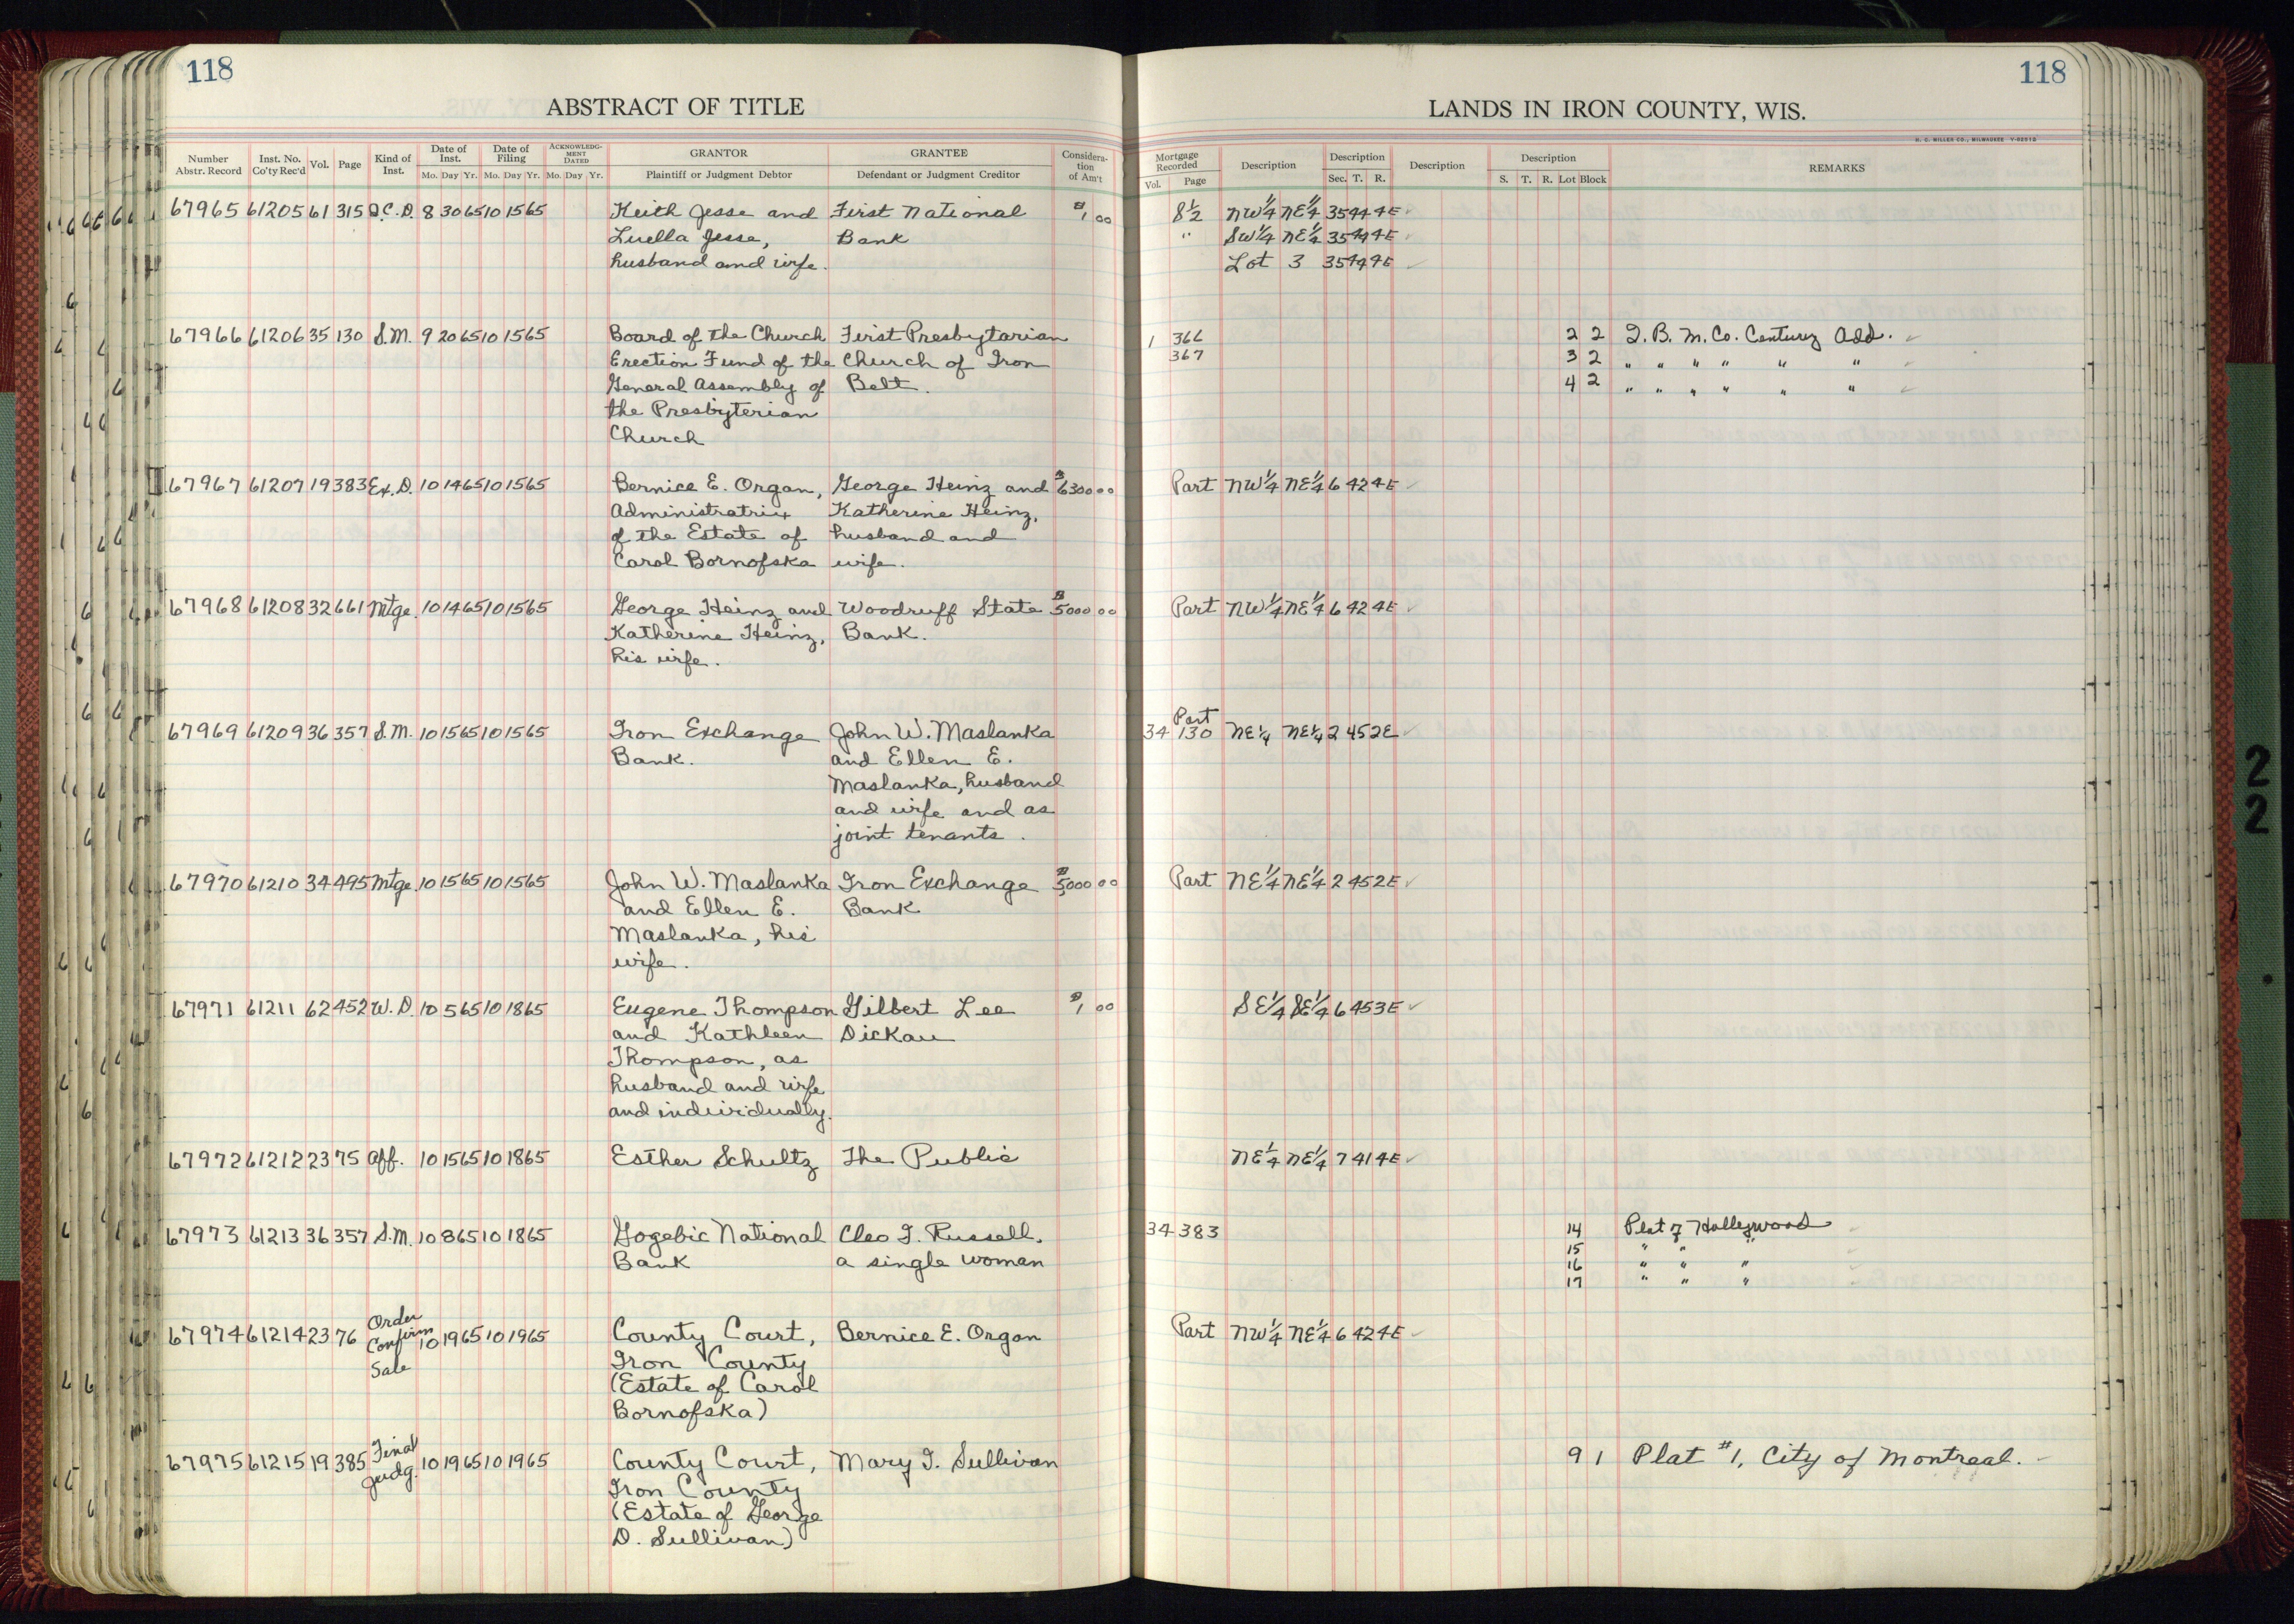 118
118
ABSTRACT OF TITLE
LANDS IN IRON COUNTY, WIS.
H. C. MILLER CO., MILWAUKEE
Number Abstr. Record Inst. No. Co'ty Rec'd Vol. Page Kind of Inst. Date of Inst. Mo. Day Yr. Date of Filing Mo. Day Yr. ACKNOWLEDGMENT DATED Mo. Day Yr. GRANTOR Plaintiff or Judgment Debtor GRANTEE Defendant or Judgment Creditor Consideration of Am't
Mortgage Recorded Vol. Page Description Description Sec. T. R. Description Description S. T. R. Lot Block REMARKS
67965 61205 61 315 Q.C.D. 8 30 65 10 15 65 Keith Jesse and First National $1 00 S½ NW¼ NE¼ 35 44 4E
Luella Jesse, Bank " SW¼ NE¼ 35 44 4E
husband and wife. Lot 3 35 44 4E
67966 61206 35 130 S.M. 9 20 65 10 15 65 Board of the Church First Presbytarian 1 366 2 2 I. B. M. Co. Century Add.
Erection Fund of the Church of Iron 367 3 2 " " " " " "
General Assembly of Belt. 4 2 " " " " " "
the Presbyterian
Church
67967 61207 19 383 Ex.D. 10 14 65 10 15 65 Bernice E. Organ, George Heinz and $6300 00 Part NW¼ NE¼ 6 42 4E
Administratrix Katherine Heinz,
of the Estate of husband and
Carol Bornofska wife.
67968 61208 32 661 Mtge. 10 14 65 10 15 65 George Heinz and Woodruff State $5000 00 Part NW¼ NE¼ 6 42 4E
Katherine Heinz, Bank.
his wife.
Part
67969 61209 36 357 S.M. 10 15 65 10 15 65 Iron Exchange John W. Maslanka 34 130 NE¼ NE¼ 2 45 2E
Bank. and Ellen E.
Maslanka, husband
and wife and as
joint tenants.
67970 61210 34 495 Mtge. 10 15 65 10 15 65 John W. Maslanka Iron Exchange $5000 00 Part NE¼ NE¼ 2 45 2E
and Ellen E. Bank
Maslanka, his
wife.
67971 61211 62 452 W.D. 10 5 65 10 18 65 Eugene Thompson Gilbert Lee $1 00 SE¼ SE¼ 6 45 3E
and Kathleen Dickau
Thompson, as
husband and wife
and individually.
67972 61212 23 75 Aff. 10 15 65 10 18 65 Esther Schultz The Public NE¼ NE¼ 7 41 4E
67973 61213 36 357 S.M. 10 8 65 10 18 65 Gogebic National Cleo I. Russell, 34 383 14 Plat of Hollywood
Bank a single woman 15 " " "
16 " " "
17 " " "
67974 61214 23 76 Order Confirm Sale 10 19 65 10 19 65 County Court, Bernice E. Organ Part NW¼ NE¼ 6 42 4E
Iron County
(Estate of Carol
Bornofska)
67975 61215 19 385 Final Judg. 10 19 65 10 19 65 County Court, Mary I. Sullivan 9 1 Plat #1, City of Montreal.
Iron County
(Estate of George
D. Sullivan)
2
2